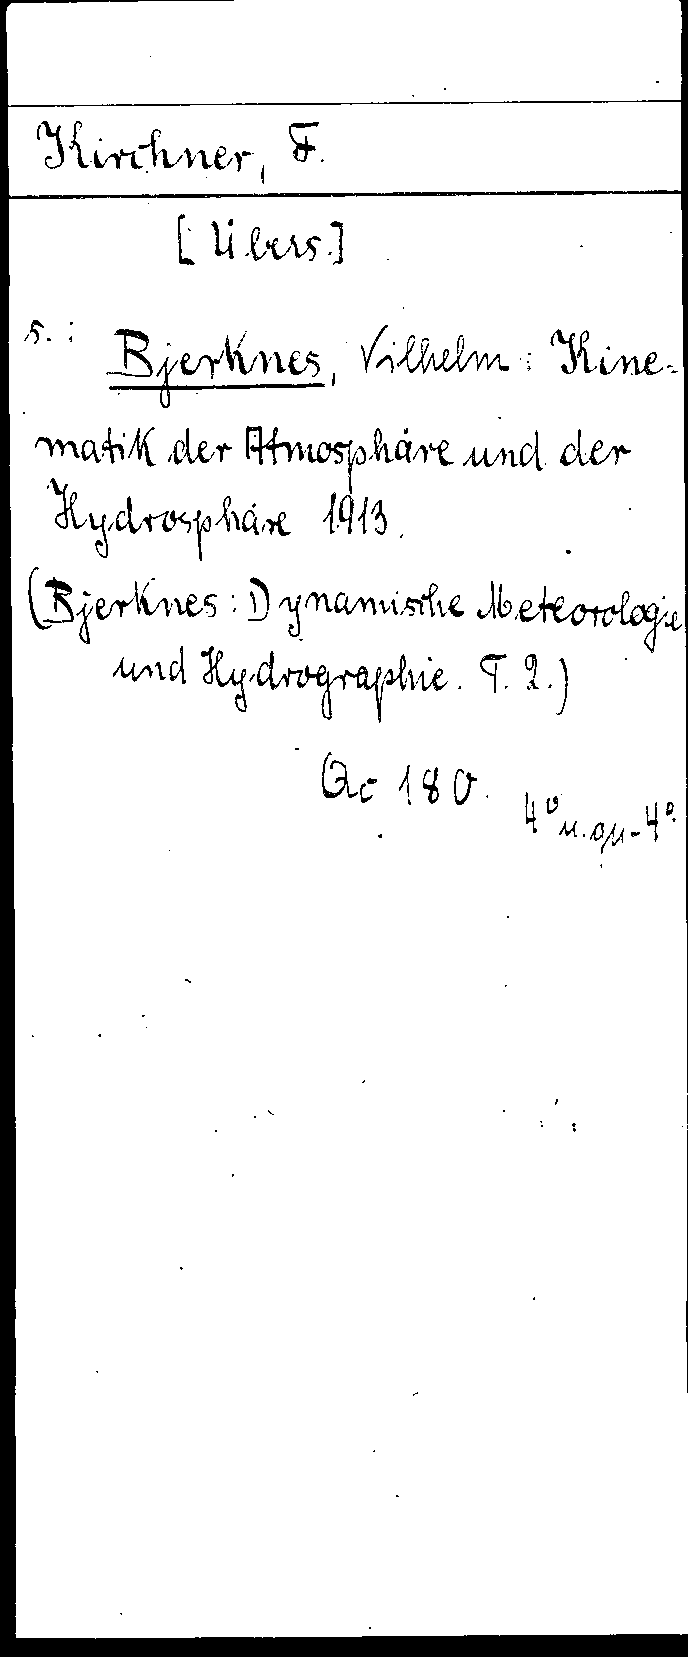 Kirchner, F.
[Übers.]
s.:
Bjerknes, Vilhelm: Kine-
matik der Atmosphäre und der
Hydrosphäre 1913.
(Bjerknes: Dynamische Meteorologie
und Hydrographie. T. 2.)
Qc 180
4° u. qu-4°